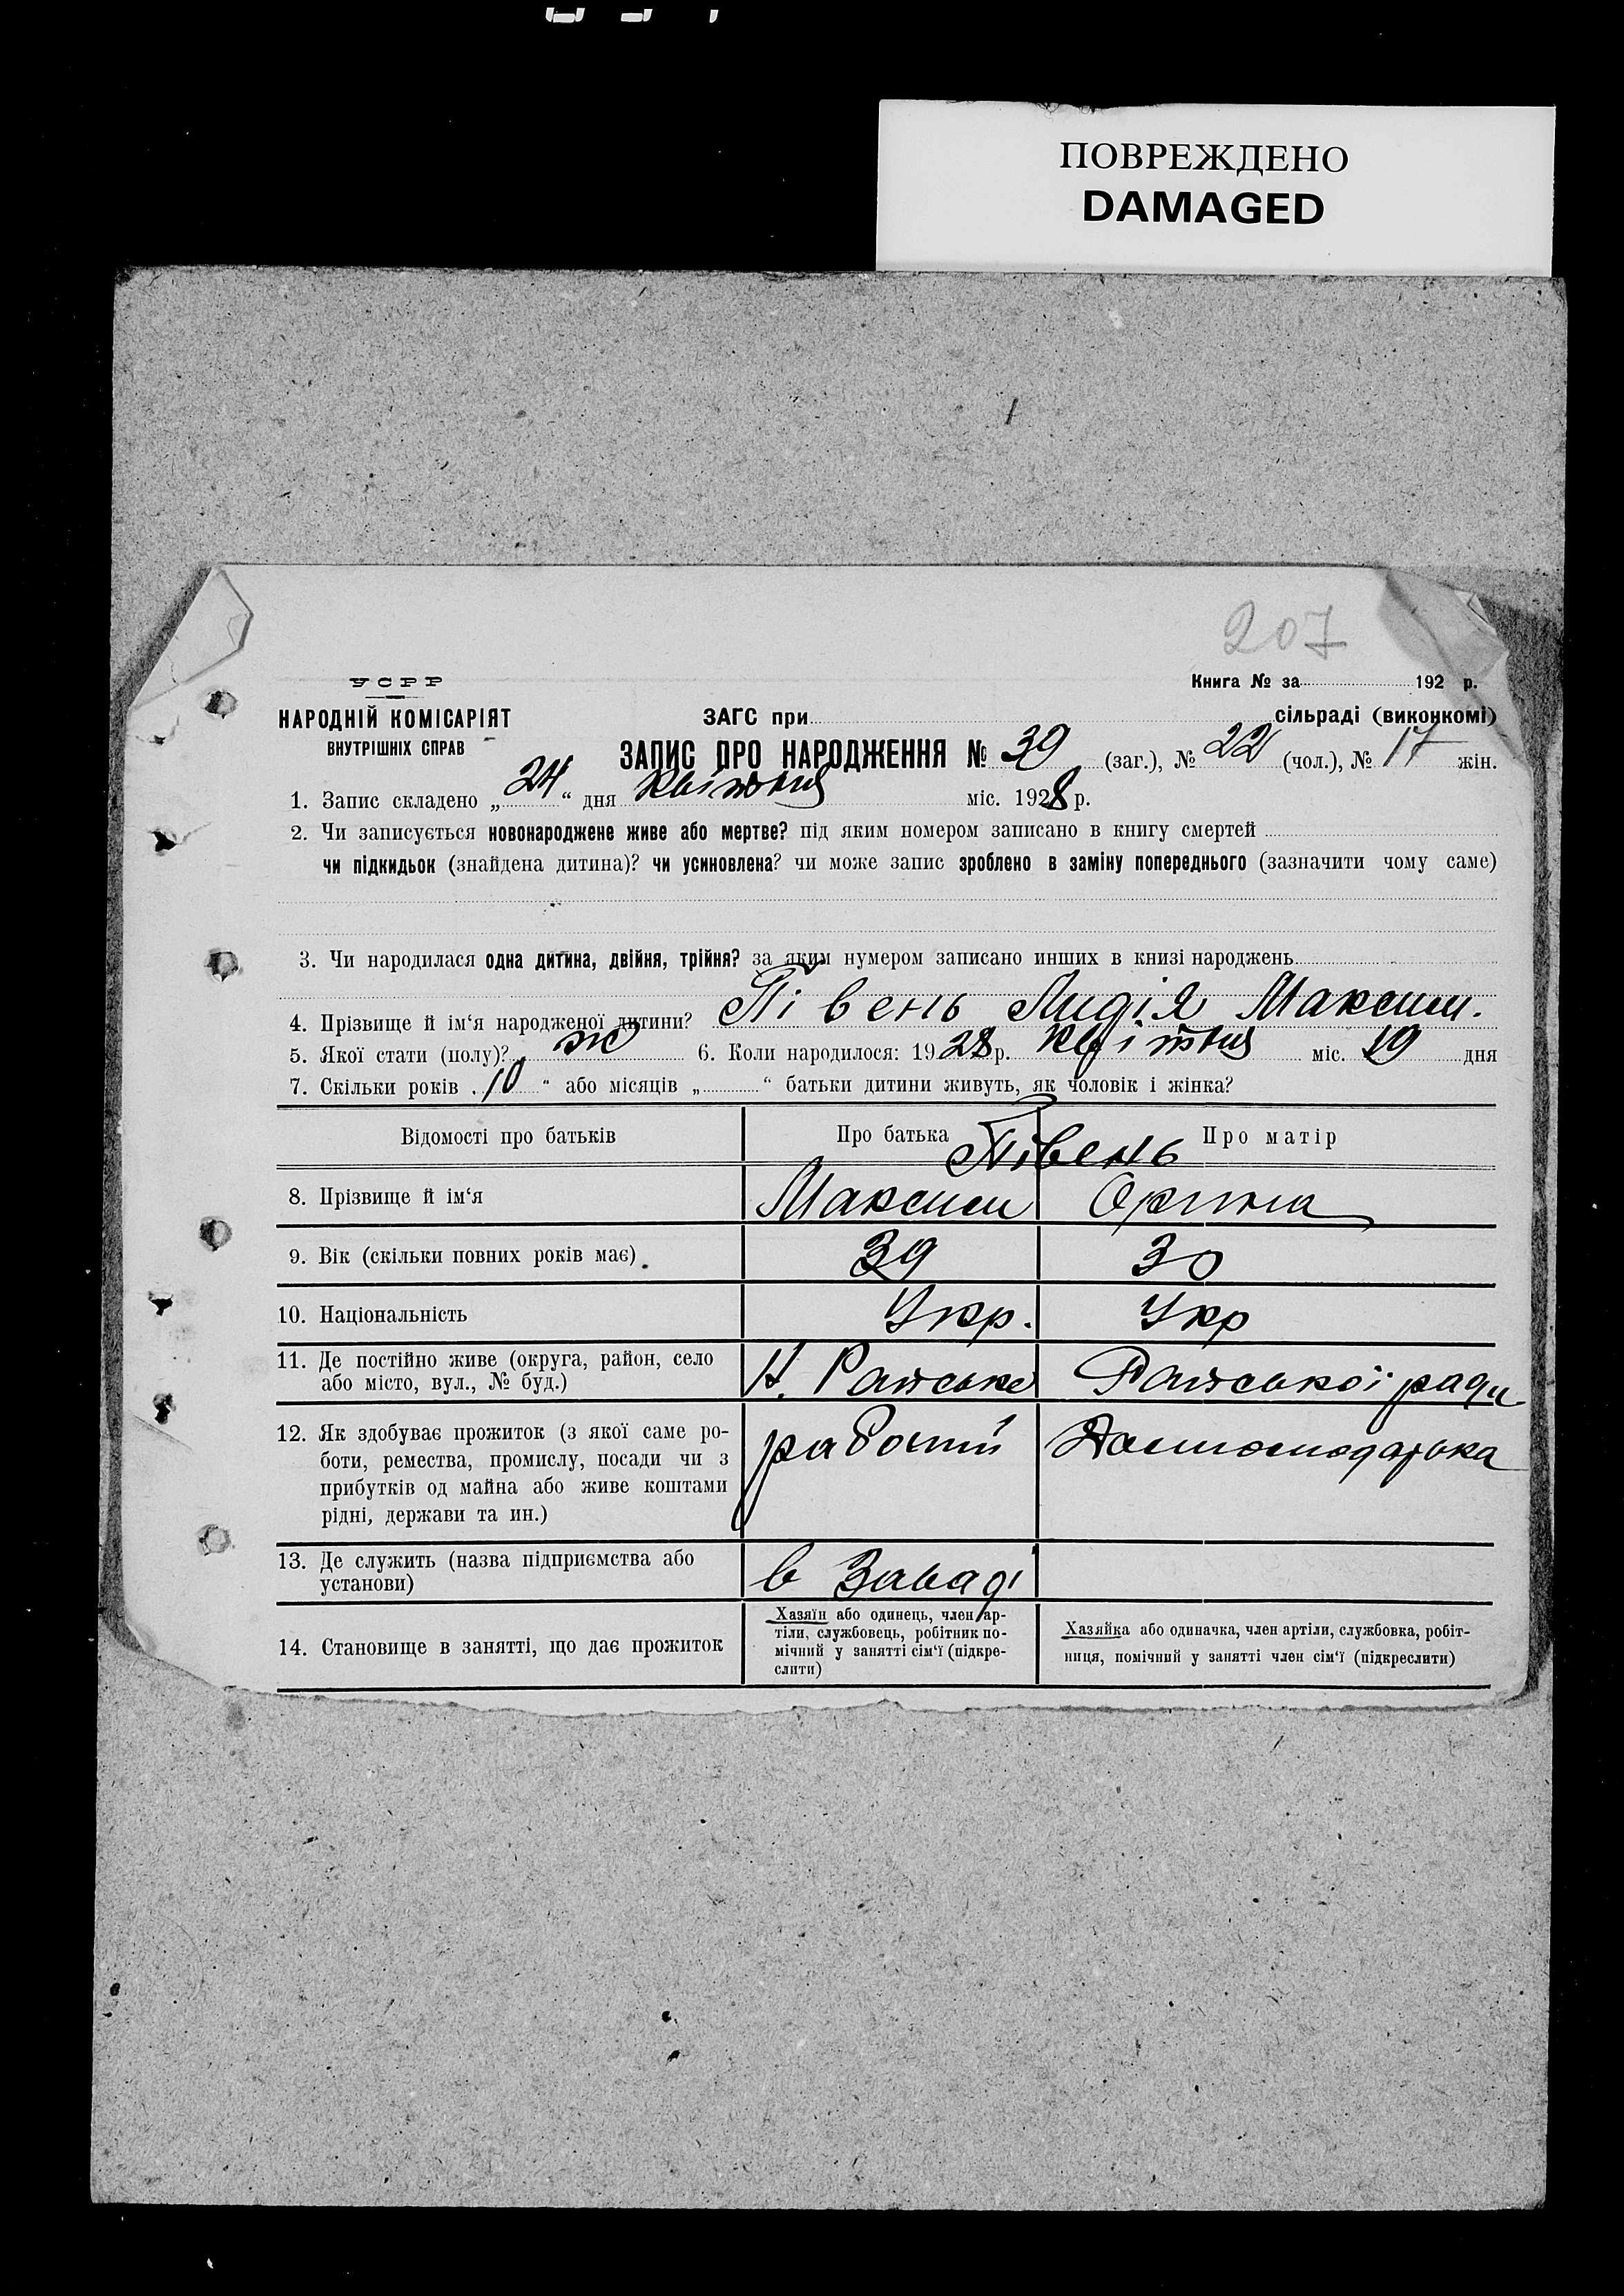 ПОВРЕЖДЕНО
DAMAGED
207
УСРР
Книга № за 192 р.
НАРОДНІЙ КОМІСАРІЯТ
ВНУТРІШНІХ СПРАВ
ЗАГС при сільраді (виконкомі)
ЗАПИС ПРО НАРОДЖЕННЯ № 39 (заг.), № 22 (чол.), № 17 жін.
1. Запис складено „ 24 “ дня квітня міс. 1928 р.
2. Чи записується новонароджене живе або мертве? під яким номером записано в книгу смертей
чи підкидьок (знайдена дитина)? чи усиновлена? чи може запис зроблено в заміну попереднього (зазначити чому саме)
3. Чи народилася одна дитина, двійня, трійня? за яким нумером записано инших в книзі народжень
4. Прізвище й ім‘я народженої дитини? Півень Лидія Максим.
5. Якої стати (полу)? ж 6. Коли народилося: 1928 р. квітня міс. 19 дня
7. Скільки років 10 “ або місяців „ “ батьки дитини живуть, як чоловік і жінка?
Відомості про батьків Про батька Про матір
Півень
8. Прізвище й ім‘я Максим Орина
9. Вік (скільки повних років має) 39 30
10. Національність Укр. Укр
11. Де постійно живе (округа, район, село
або місто, вул., № буд.) Н. Райське Райської ради
12. Як здобуває прожиток (з якої саме ро-
боти, ремества, промислу, посади чи з
прибутків од майна або живе коштами
рідні, держави та ин.)
13. Де служить (назва підприємства або
установи) в Заваді
14. Становище в занятті, що дає прожиток
Хазяїн або одинець, член ар-
тіли, службовець, робітник по-
мічний у занятті сім‘ї (підкре-
слити)
Хазяйка або одиначка, член артіли, службовка, робіт-
ниця, помічний у занятті член сім‘ї (підкреслити)